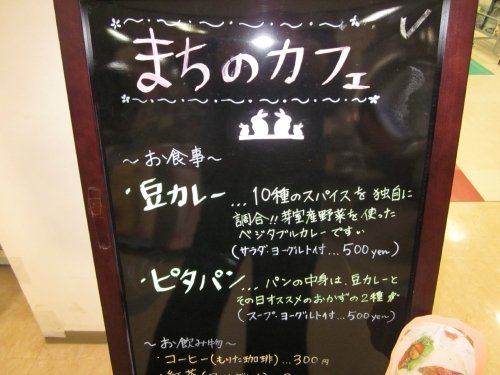 まちのカフェ
～お食事～
・豆カレー…10種のスパイスを独自に
調合!!芽室産野菜を使った
ベジタブルカレーです
(サラダ・ヨーグルト付…500yen)
・ピタパン…パンの中身は、豆カレーと
その日オススメのおかずの2種が
(スープ・ヨーグルト付…500yen)
～お飲み物～
・コーヒー(もりた珈琲)…300円
・紅茶